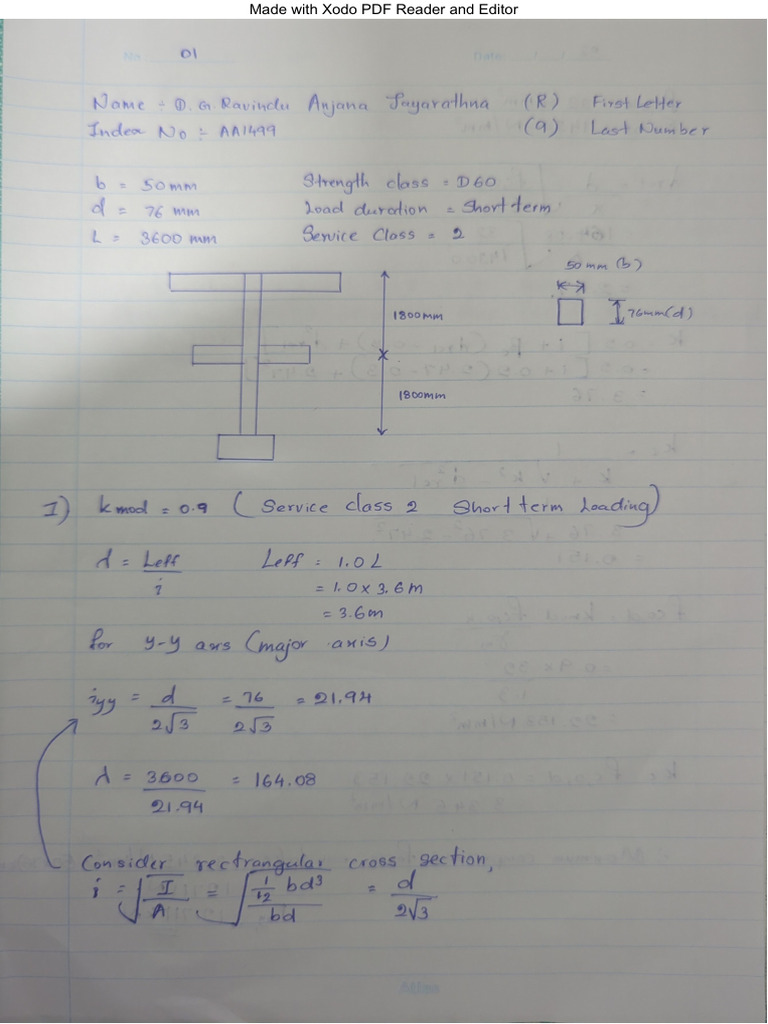 Made with Xodo PDF Reader and Editor
No 01
Date
Name :- D. G. Ravindu Anjana Jayarathna (R) First Letter
Index No :- AA1499 (9) Last Number
b = 50mm Strength class = D60
d = 76 mm Load duration = Short term
L = 3600 mm Service Class = 2
50 mm (b)
1800mm
76mm(d)
1800mm
I) kmod = 0.9 ( Service class 2 Short term Loading)
λ = Leff / i Leff = 1.0 L
= 1.0 x 3.6 m
= 3.6m
for y-y axis (major axis)
iyy = d / 2√3 = 76 / 2√3 = 21.94
λ = 3600 / 21.94 = 164.08
Consider rectrangular cross section,
i = √(I / A) = √(1/12 bd³ / bd) = d / 2√3